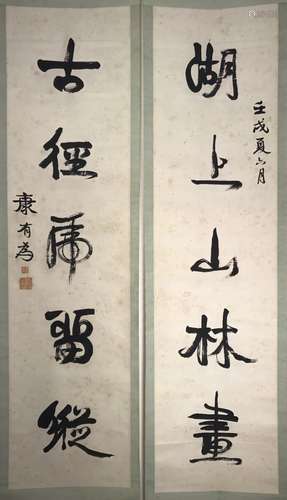 湖上山林畫
壬戌夏六月
古徑虎畱縱
康有為